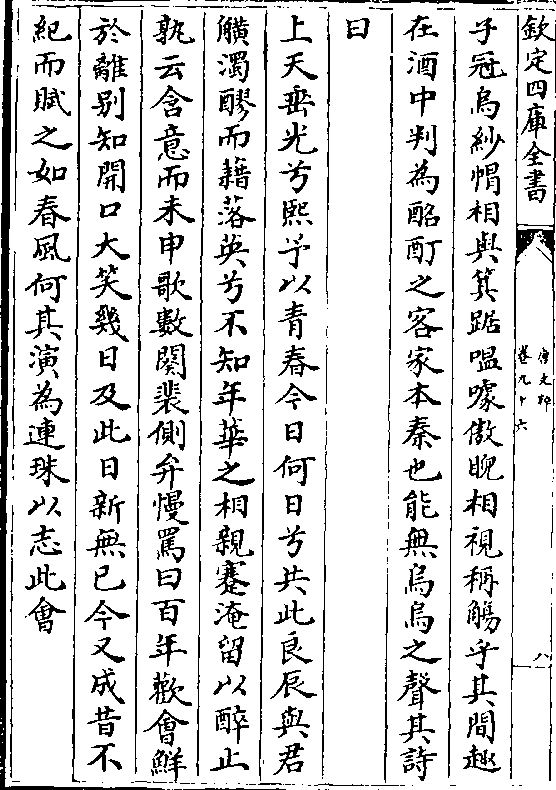 欽定四庫全書
唐文粹
卷九十六
八
子冠烏紗帽相與箕踞嗢噱傲睨相視稱觴乎其間趣
在酒中判為酩酊之客家本秦也能無烏烏之聲其詩
曰
上天垂光兮熙予以青春今日何日兮共此良辰與君
觵濁醪而藉落英兮不知年華之相親蹇淹留以醉止
孰云含意而未申歌數闋裴側弁慢罵曰百年歡會鮮
於離别知開口大笑幾日及此日新無已今又成昔不
紀而賦之如春風何其演為連珠以志此會